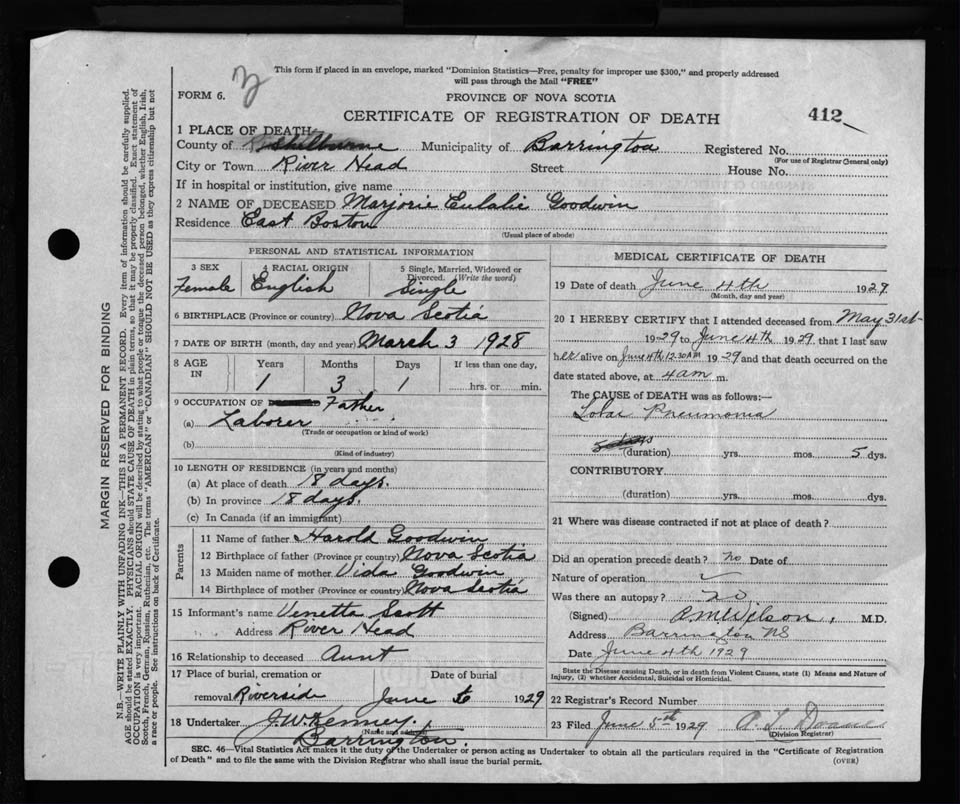 This form if placed in an envelope, marked "Dominion Statistics—Free, penalty for improper use $300," and properly addressed
will pass through the Mail "FREE"
FORM 6.
PROVINCE OF NOVA SCOTIA
CERTIFICATE OF REGISTRATION OF DEATH
412
1 PLACE OF DEATH
County of Shelburne Municipality of Barrington Registered No.
(For use of Registrar General only)
City or Town River Head Street House No.
If in hospital or institution, give name
2 NAME OF DECEASED Marjorie Eulalie Goodwin
Residence East Boston
(Usual place of abode)
PERSONAL AND STATISTICAL INFORMATION
3 SEX 4 RACIAL ORIGIN 5 Single, Married, Widowed or
Divorced. (Write the word)
Female English Single
6 BIRTHPLACE (Province or country) Nova Scotia
7 DATE OF BIRTH (month, day and year) March 3 1928
8 AGE IN Years Months Days If less than one day,
1 3 1 hrs. or min.
9 OCCUPATION OF Father
(a) Laborer
(Trade or occupation or kind of work)
(b)
(Kind of industry)
10 LENGTH OF RESIDENCE (in years and months)
(a) At place of death 18 days.
(b) In province 18 days.
(c) In Canada (if an immigrant)
Parents
11 Name of father Harold Goodwin
12 Birthplace of father (Province or country) Nova Scotia
13 Maiden name of mother Vida Goodwin
14 Birthplace of mother (Province or country) Nova Scotia
15 Informant's name Venetta Scott
,, Address River Head
16 Relationship to deceased Aunt
17 Place of burial, cremation or Date of burial
removal Riverside June 6 1929
18 Undertaker J. W. Kenney.
(Name and address)
Barrington.
MEDICAL CERTIFICATE OF DEATH
19 Date of death June 4th 1929
(Month, day and year)
20 I HEREBY CERTIFY that I attended deceased from May 31st
1929 to June 4th 1929. that I last saw
her alive on June 4th 12.30 AM 1929 and that death occurred on
date stated above, at 4 am m.
The CAUSE of DEATH was as follows:—
Lobar Pneumonia
5 days
(duration) yrs. mos. 5 dys.
CONTRIBUTORY
(duration) yrs. mos. dys.
21 Where was disease contracted if not at place of death?
Did an operation precede death? no Date of
Nature of operation
Was there an autopsy? no
(Signed) A.M. Wilson, M.D.
Address Barrington NS
Date June 4th 1929
State the Disease causing Death, or in death from Violent Causes, state (1) Means and Nature of
Injury, (2) whether Accidental, Suicidal or Homicidal.
22 Registrar's Record Number
23 Filed June 5th 1929 A. L. Doane
(Division Registrar)
SEC. 46—Vital Statistics Act makes it the duty of the Undertaker or person acting as Undertaker to obtain all the particulars required in the "Certificate of Registration
of Death" and to file the same with the Division Registrar who shall issue the burial permit.
(OVER)
MARGIN RESERVED FOR BINDING
N.B.—WRITE PLAINLY WITH UNFADING INK—THIS IS A PERMANENT RECORD. Every item of information should be carefully supplied.
AGE should be stated EXACTLY. PHYSICIANS should STATE CAUSE OF DEATH in plain terms, so that it may be properly classified. Exact statement of
OCCUPATION is very important. RACIAL ORIGIN will be described by stating to what people or tongue the deceased person belonged, whether English, Irish,
Scotch, French, German, Russian, Ruthenian, etc. The terms "AMERICAN" or "CANADIAN" SHOULD NOT BE USED as they express citizenship but not
a race or people. See instructions on back of Certificate.